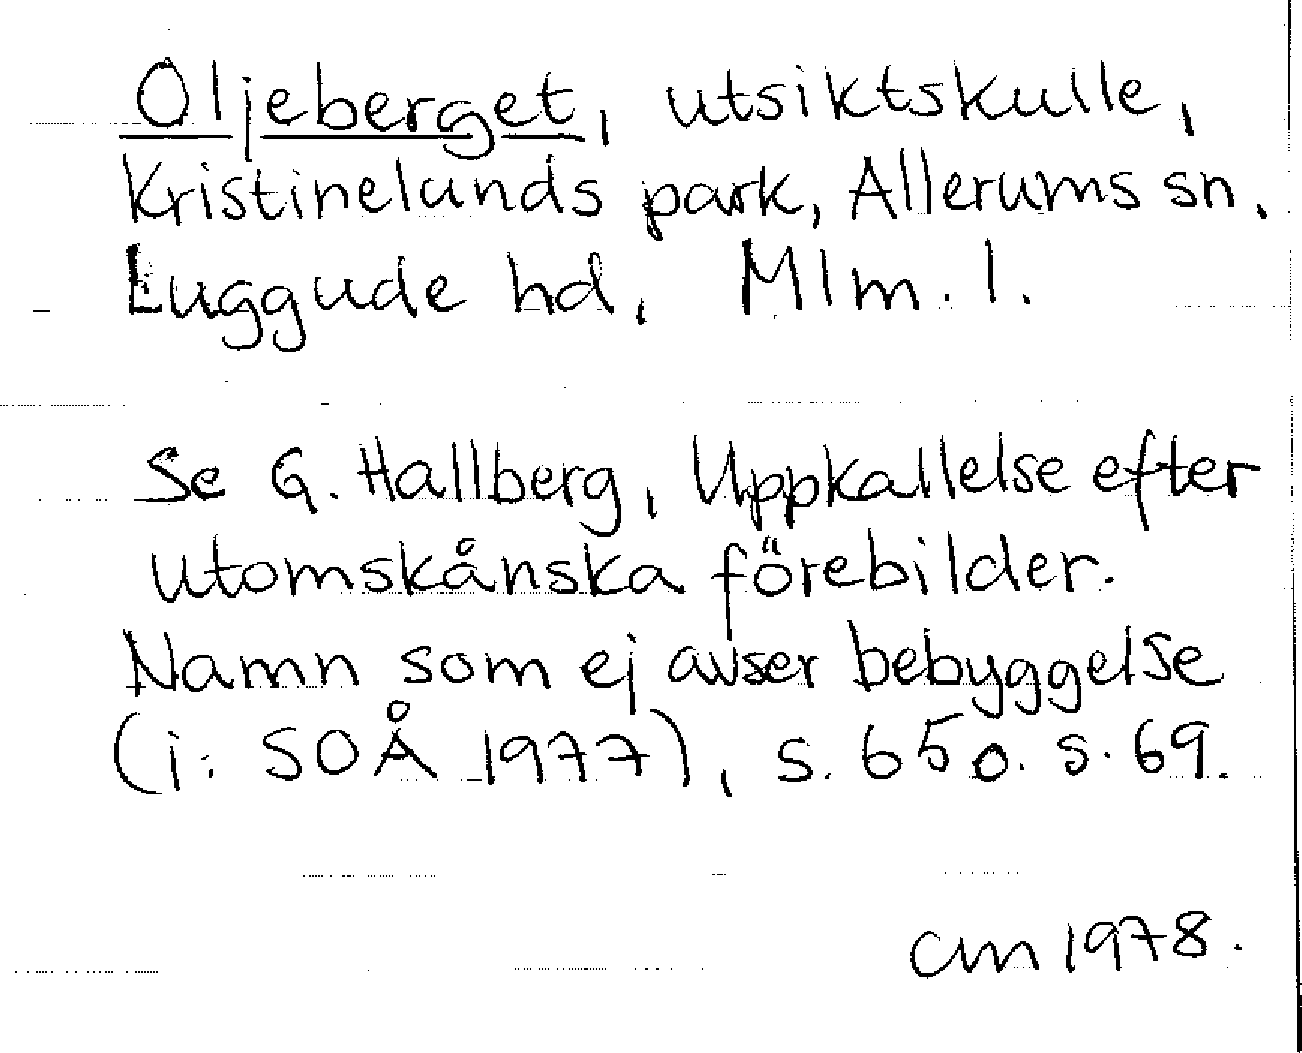 Oljeberget, utsiktskulle,
Kristinelunds park, Allerums sn.
Luggude hd, Mlm. l.
Se G. Hallberg, Uppkallelse efter
utomskånska förebilder.
Namn som ej avser bebyggelse
(i: SOÅ 1977), s. 65 o. s. 69.
cm 1978.